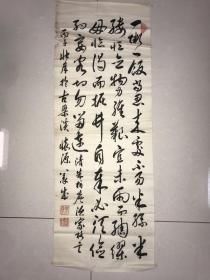 一粥一飯當思來處不易半絲半
縷恒念物力維艱宜未雨而綢繆
毋臨渴而掘井自奉必須儉
約宴客切勿留連 清朱柏廬治家格言
丙子 月於古梁溪